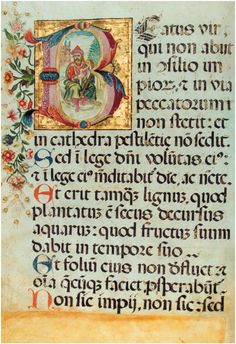 Beatus vir,
qui non abiit
in cōsilio im
pioꝝ, ⁊ in via
peccatorum n
non stetit: et
in cathedra pestilētie nō sedit.
Sed ī lege dn̄i volūtas ei⁹:
⁊ ī lege ei⁹ meditabit̄ die, ac nocte.
Et erit tamqȝ lignuȝ, quod
plantatuȝ ē secus decursus
aquaruȝ: quod fructuȝ suum
dabit in tempore suo
Et foliū eius non defluet: ⁊
oīa quecūqȝ faciet prosperabūt̄.
Non sic impij, non sic: sed